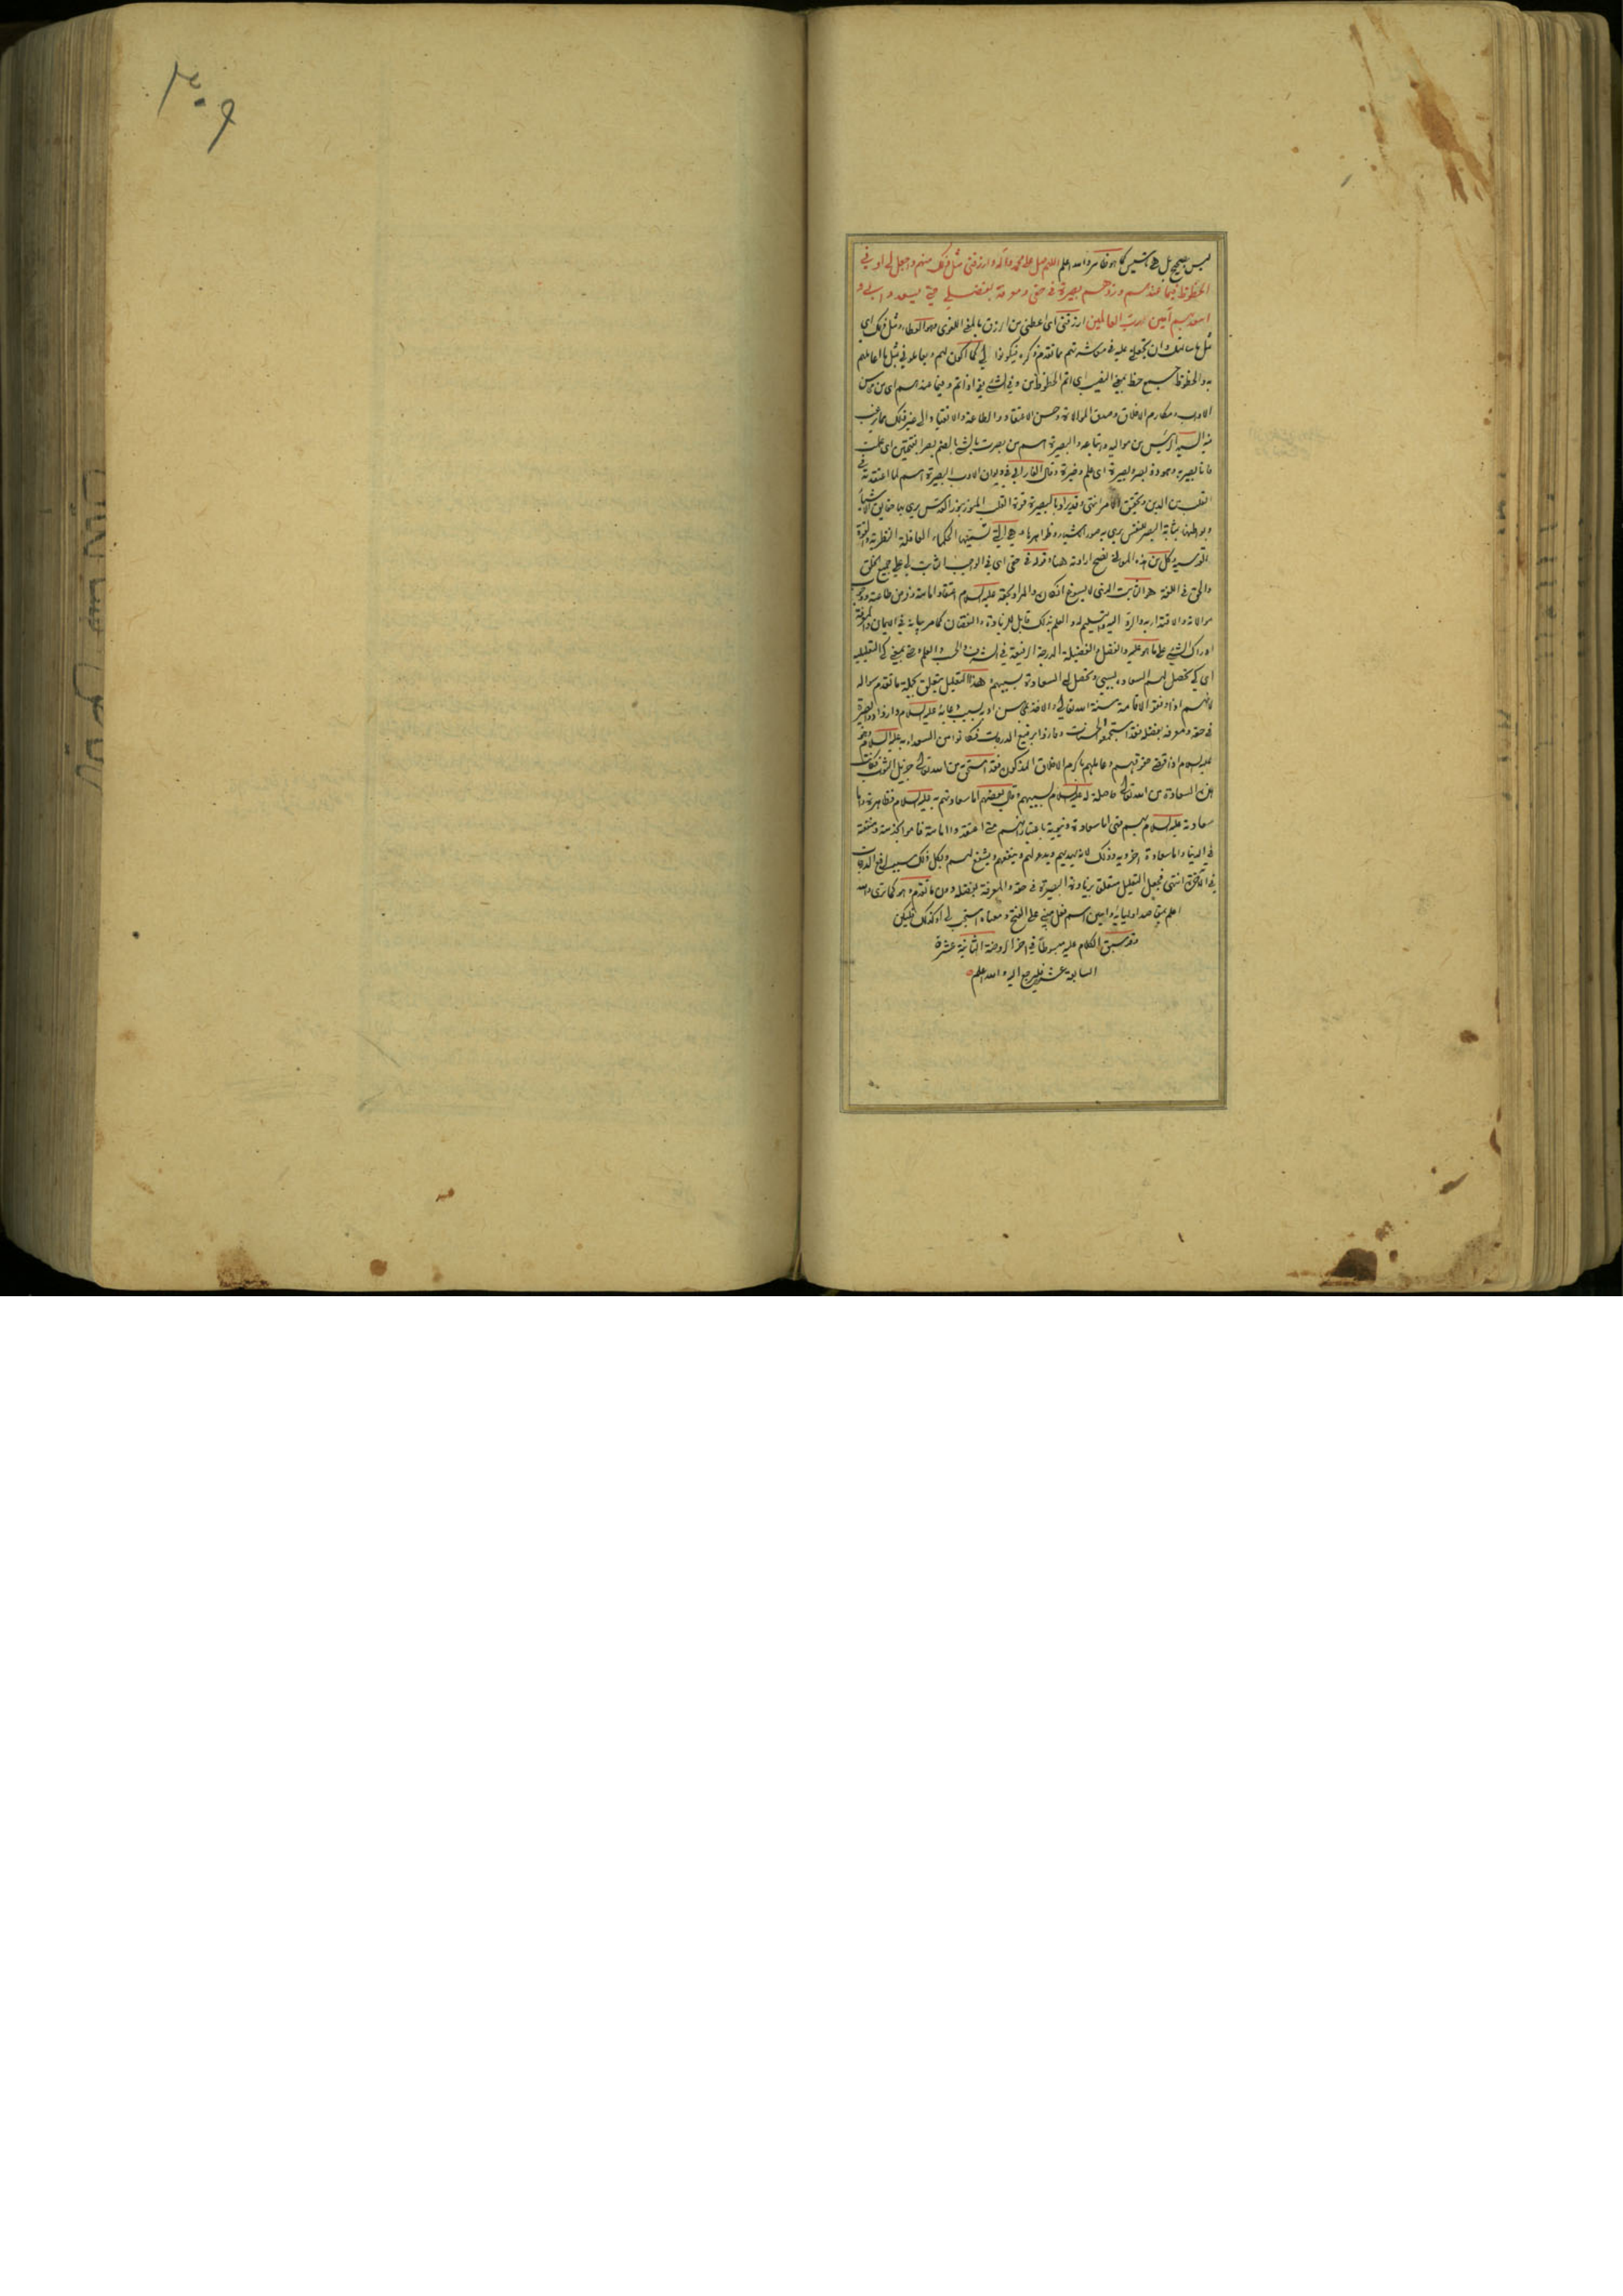 ٣٠٩
ليس بصحيح بل هي كما هو ظاهر والله اعلم اللهم صل على محمد وآله وارزقني مثل ذلك منهم واجعل لي اوفى
الحظوظ فيما عندهم وزدهم بصيرة في حقي ومعرفة بفضلي حتى يسعدوا بي و
اسعد بهم آمين رب العالمين ارزقني اى اعطني من الرزق بالمعنى اللغوى وهو العطاء ومثل ذلك اى
مثل ما سالتك ان تجعلني عليه في معاشرتهم مما تقدم ذكره فيكونوا لي كما اكون لهم ويعاملوني بمثل ما اعاملهم
به والحظوظ جمع حظ بمعنى النصيب اى اتم الحظوظ من وفى الشئ يفي اذا تم وفيما عندهم اى من محاسن
الادب ومكارم الاخلاق وصدق الموالاة وحسن الاعتقاد والطاعة والانقياد الى غير ذلك مما يرغب
فيه السيد الرئيس من مواليه واتباعه والبصيرة اسم من بصرت بالشئ بالضم بصرا بفتحتين اى علمت
فانا بصير به وهو ذو بصر وبصيرة اى علم وخبرة وقال الفارابي في ديوان الادب البصيرة اسم لما اعتقد في
القلب من الدين وتحقيق الامر انتهى وقد يراد بالبصيرة قوة القلب المنور بنور القدس يرى بها حقايق الاشياء
وبواطنها بمثابة البصر للنفس يرى به صور الاشياء وظواهرها وهي التي تسميها الحكماء العاقلة النظرية والقوة
القدسية وكل من هذه المعاني تصح ارادته هنا وقوله في حقي اى في الواجب الثابت لي على جميع الخلق
والحق في اللغة هو الثابت الذى لا يسوغ انكاره والمراد بحقه عليه السلام اعتقاد امامته وفرض طاعته ووجوب
موالاته والاقتداء به والرد اليه والتسليم له والعلم بذلك قابل للزيادة والنقصان كما مر بيانه في الايمان والمعرفة
ادراك الشئ على ما هو عليه والفضل والفضيلة الدرجة الرفيعة في الشرف والحسب والعلم وحتى بمعنى كي التعليلية
اى كي تحصل لهم السعادة بسببي وتحصل لي السعادة بسببهم وهذا التعليل متعلق بجملة ما تقدم سواله
لانهم اذا وفقوا لاقامة سنة الله تعالى والاخذ بمحاسن ادبه بسبب دعائه عليه السلام وازدادوا بصيرة
في حقه ومعرفة بفضله فقد استجمعوا الحسنات وفازوا برفيع الدرجات فكانوا من السعداء به عليه السلام وهو
عليه السلام اذا قضى حقوقهم وعاملهم بمكارم الاخلاق المذكور فقد استحق من الله تعالى جزيل الثواب فكانت
هذه السعادة من الله تعالى حاصلة له عليه السلام بسببهم وقال بعضهم اما سعادتهم به عليه السلام فظاهرة واما
سعادته عليه السلام بهم فهي اما سعادة دنيوية باعتبار انهم متى اعتقدوا امامته قاموا بخدمته ومنفعته
في الدنيا واما سعادة اخروية وذلك لانه يهديهم ويدعو لهم وينفعهم ويشفع لهم وكل ذلك سبب لرفع الدرجات
في الآخرة انتهى فجعل التعليل متعلقا بزيادة البصيرة في حقه والمعرفة بفضله دون ما تقدم وهو كما ترى والله
اعلم بمقاصد اوليائه وآمين اسم فعل مبني على الفتح ومعناه استجب لي او كذلك فليكن
وقد سبق الكلام عليه مبسوطا في آخر الروضة الثانية عشرة
السابعة عشر فليرجع اليه والله اعلم